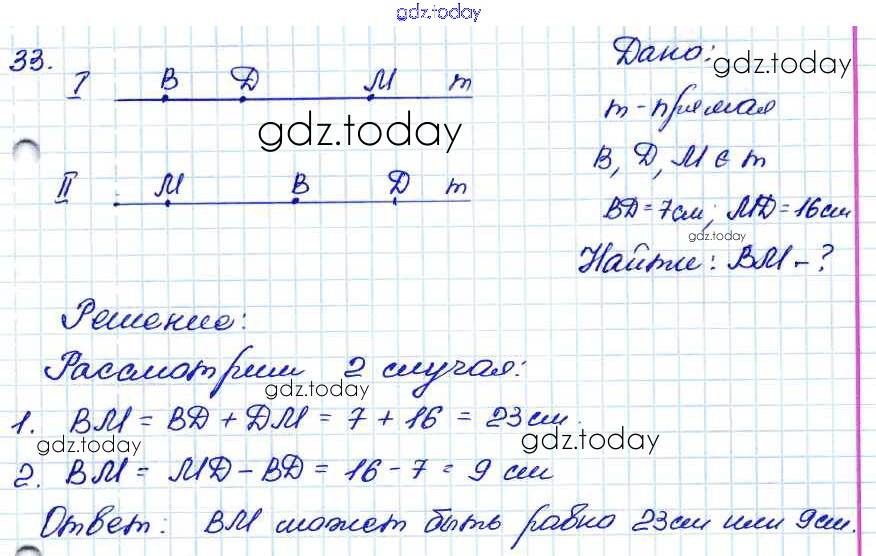 gdz.today
33.
I B D M m
II M B D m
Дано:
gdz.today
m - прямая
gdz.today
B, D, M ∈ m
BD = 7 см; MD = 16 см
gdz.today
Найти: BM - ?
Решение:
Рассмотрим 2 случая:
gdz.today
1. BM = BD + DM = 7 + 16 = 23 см.
gdz.today
gdz.today
2. BM = MD - BD = 16 - 7 = 9 см
Ответ: BM может быть равно 23 см или 9 см.